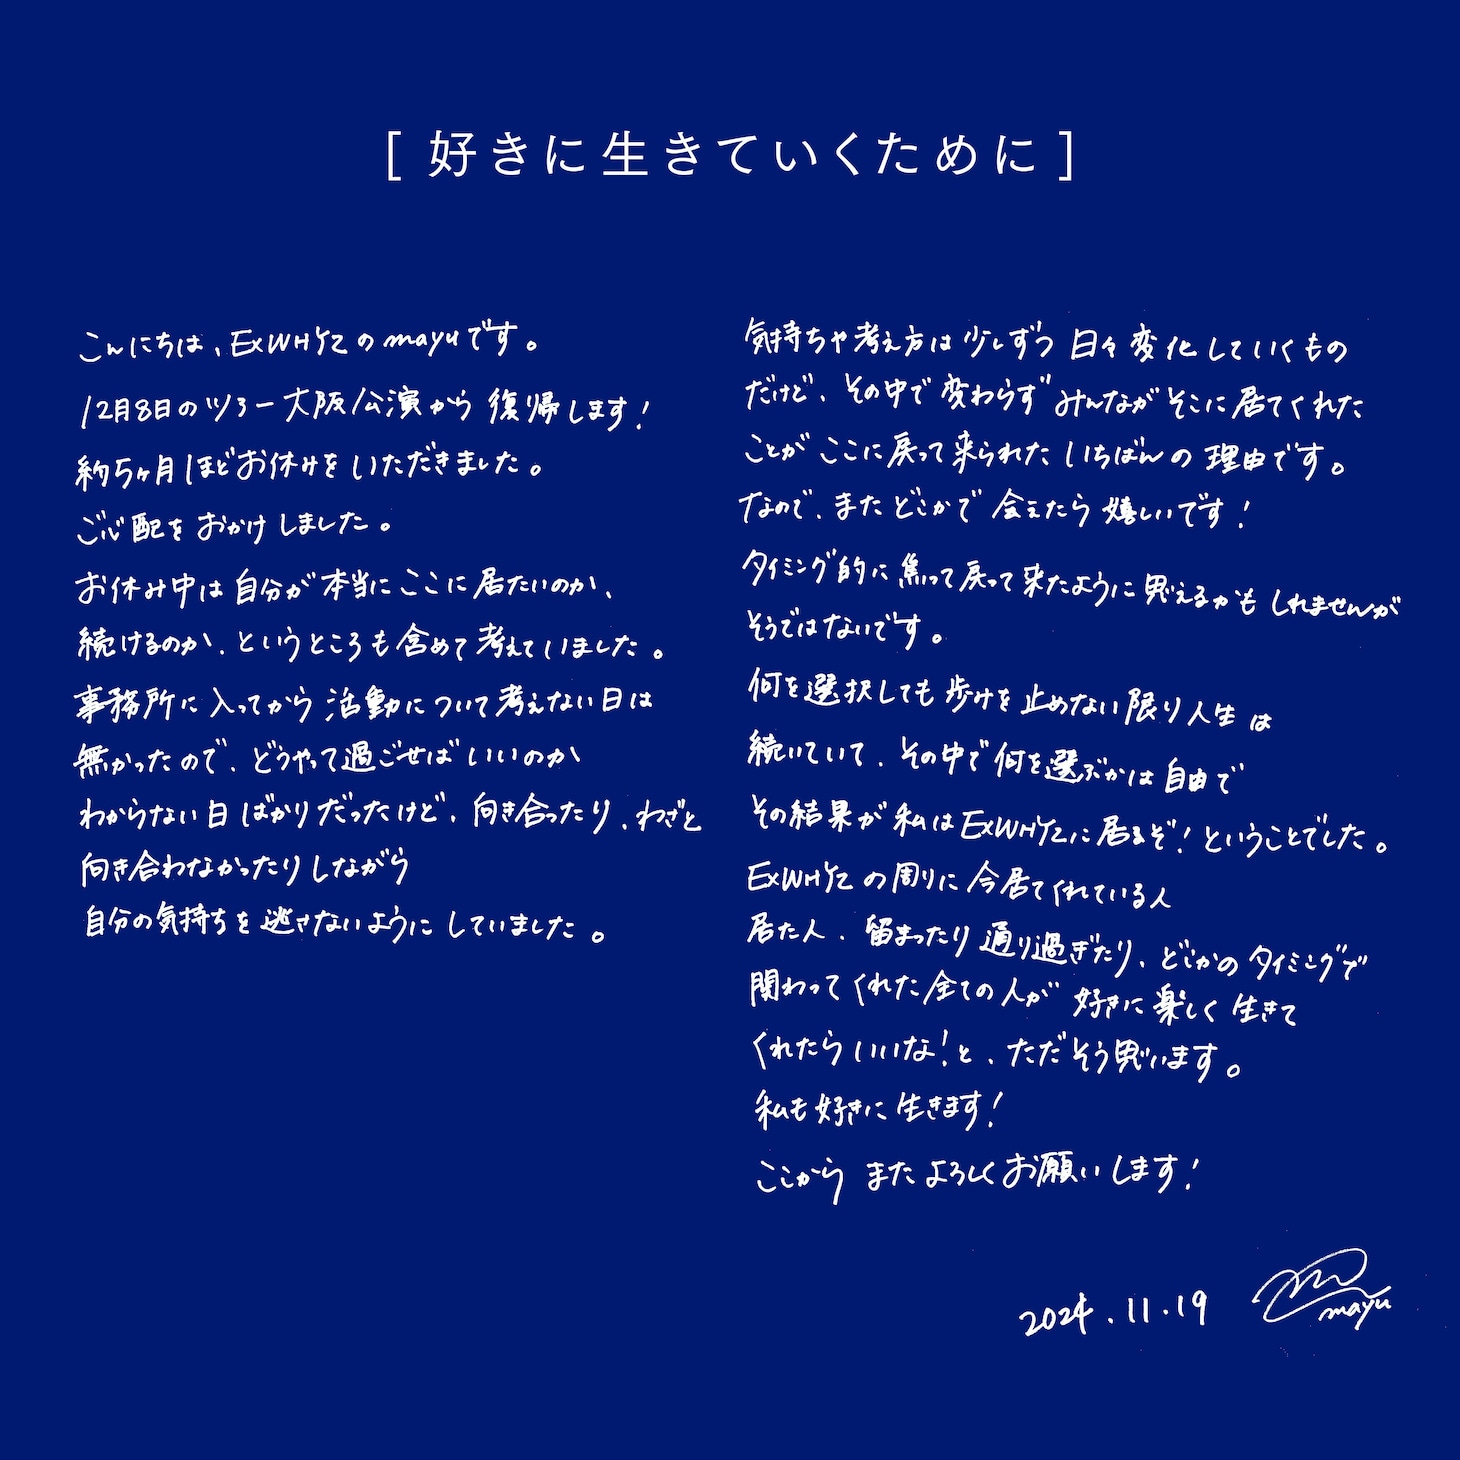 [ 好きに生きていくために ]
こんにちは、ExWHYZのmayuです。
12月8日のツアー大阪公演から復帰します!
約5ヶ月ほどお休みをいただきました。
ご心配をおかけしました。
お休み中は自分が本当にここに居たいのか、
続けるのか、というところも含めて考えていました。
事務所に入ってから活動について考えない日は
無かったので、どうやって過ごせばいいのか
わからない日ばかりだったけど、向き合ったり、わざと
向き合わなかったりしながら
自分の気持ちを逃さないようにしていました。
気持ちや考え方は少しずつ日々変化していくもの
だけど、その中で変わらずみんながそこに居てくれた
ことがここに戻って来られたいちばんの理由です。
なので、またどこかで会えたら嬉しいです!
タイミング的に焦って戻って来たように思えるかもしれませんが
そうではないです。
何を選択しても歩みを止めない限り人生は
続いていて、その中で何を選ぶかは自由で
その結果が私はExWHYZに居るぞ!ということでした。
ExWHYZの周りに今居てくれている人
居た人、留まったり通り過ぎたり、どこかのタイミングで
関わってくれた全ての人が好きに楽しく生きて
くれたらいいな!と、ただそう思います。
私も好きに生きます!
ここからまたよろしくお願いします!
2024.11.19
mayu